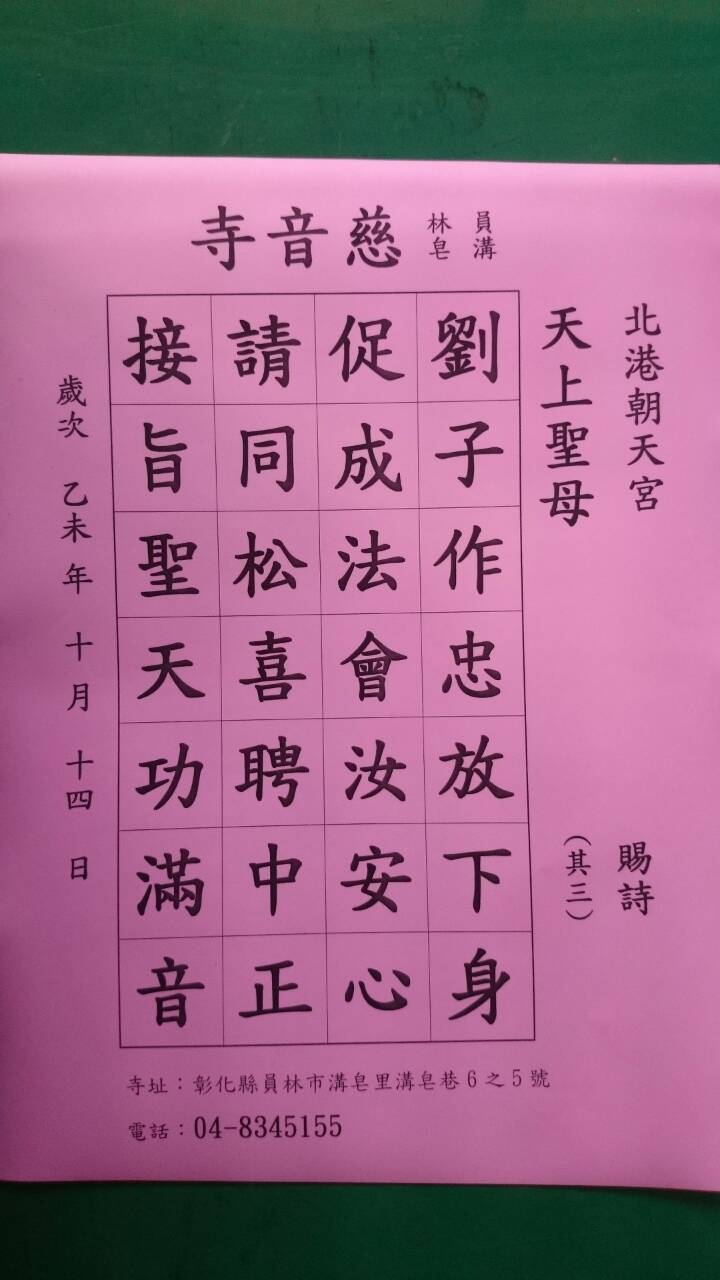 員林
溝皂
慈音寺
北港朝天宮 賜詩
天上聖母 (其三)
劉子作忠放下身
促成法會汝安心
請同松喜聘中正
接旨聖天功滿音
歲次 乙未 年 十月 十四 日
寺址：彰化縣員林市溝皂里溝皂巷6之5號
電話：04-8345155